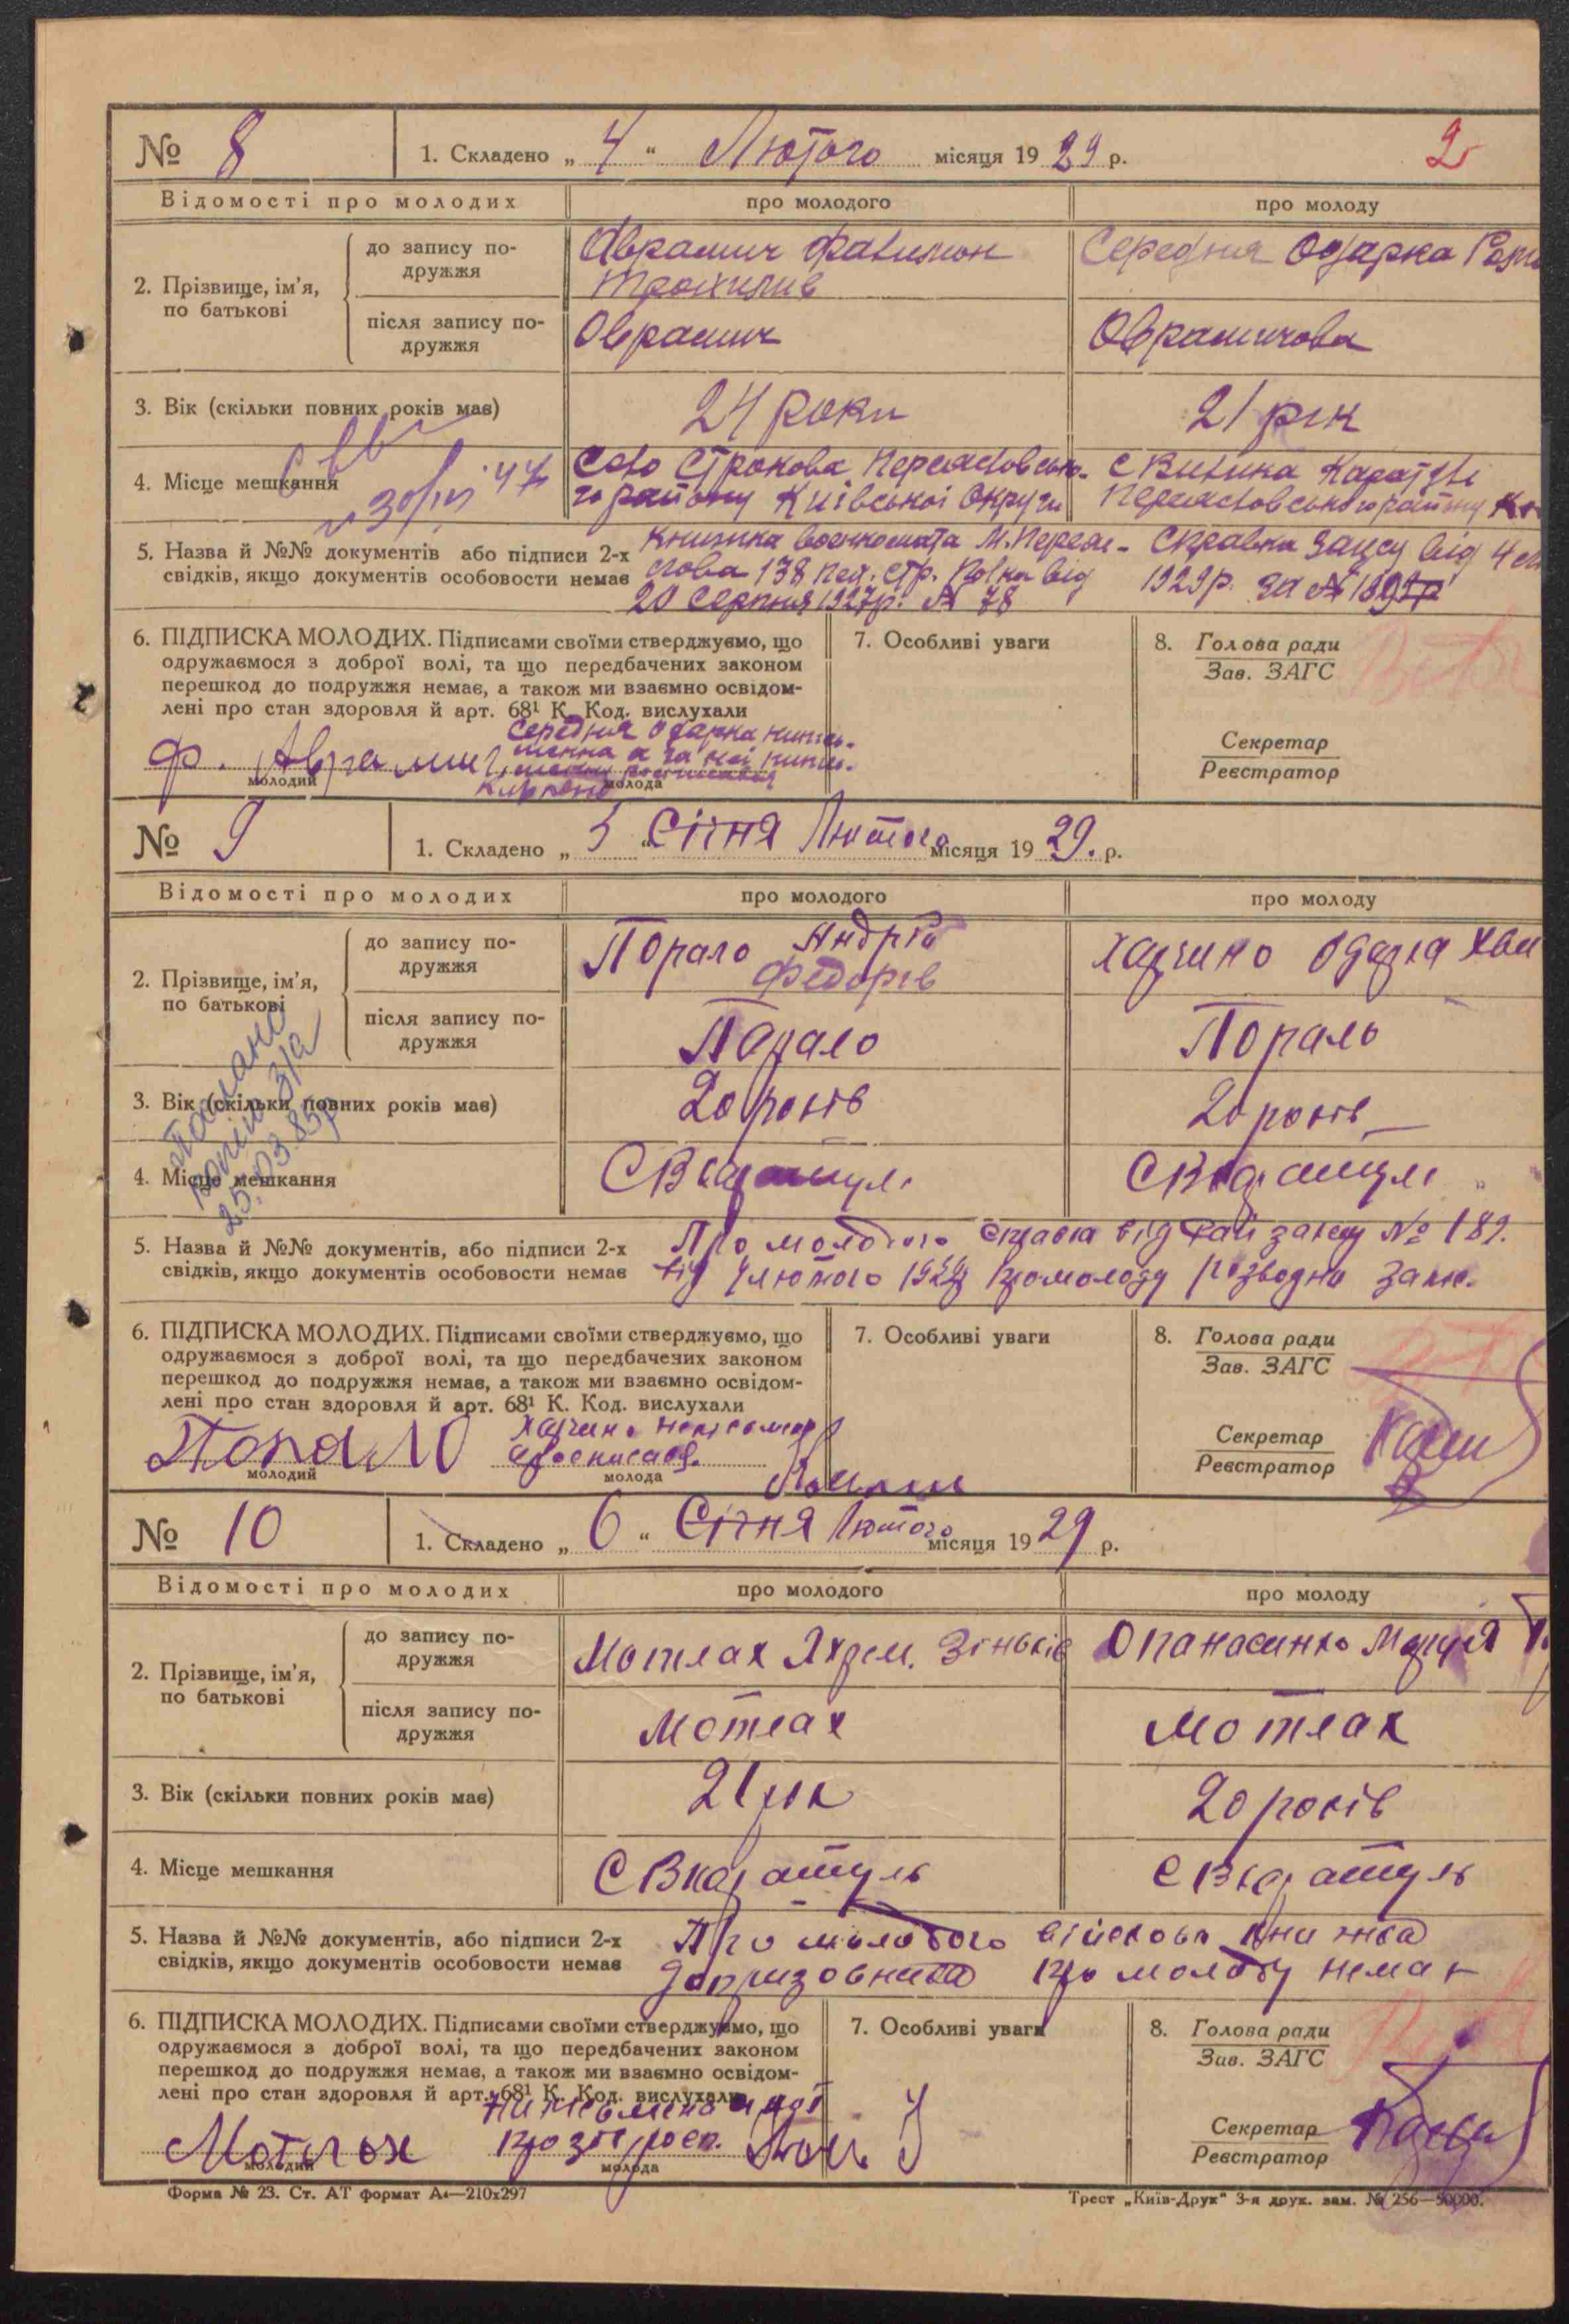 № 8 1. Складено „ 4 “ Лютого місяця 19 29 р. 2
Відомості про молодих про молодого про молоду
2. Прізвище, ім’я, по батькові
до запису по-
дружжя
Аврамич Филимон Середня Одарка
Трохимів
після запису по-
дружжя
Оврамич Оврамичова
3. Вік (скільки повних років має) 24 роки 21 рік
30/III 47
4. Місце мешкання
Село Строкова Переяславсько- С
го району Київської Округи Переяславського району
5. Назва й №№ документів або підписи 2-х
свідків, якщо документів особовости немає
Книжка военкомата М. Переяс- Справка Загсу від 4
лова 138 стр. Полка від 1929 р. за №
20 Серпня 1927 р. № 78
6. ПІДПИСКА МОЛОДИХ. Підписами своїми стверджуємо, що
одружаємося з доброї волі, та що передбачених законом
перешкод до подружжя немає, а також ми взаємно освідом-
лені про стан здоровля й арт. 68¹ К. Код. вислухали
Середня Одарка
Ф. Аврамич
молодий молода
7. Особливі уваги
8. Голова ради
Зав. ЗАГС
Секретар
Реєстратор
№ 9 1. Складено „ 5 “ Січня Лютого місяця 19 29. р.
Відомості про молодих про молодого про молоду
2. Прізвище, ім’я,
по батькові
до запису по-
дружжя
Порало Андрій Харчино Одарка Хви
Федорів
після запису по-
дружжя
Парало Пораль
3. Вік (скільки повних років має) 20 років 20 років
25.03.85р
4. Місце мешкання С С
5. Назва й №№ документів, або підписи 2-х
свідків, якщо документів особовости немає
Про молодого справка від Рай загсу № 189.
від 4 лютого 1929 про молоду розводна
6. ПІДПИСКА МОЛОДИХ. Підписами своїми стверджуємо, що
одружаємося з доброї волі, та що передбачених законом
перешкод до подружжя немає, а також ми взаємно освідом-
лені про стан здоровля й арт. 68¹ К. Код. вислухали
Порало Харчино
молодий молода
7. Особливі уваги
8. Голова ради
Зав. ЗАГС
Секретар
Реєстратор
№ 10 1. Складено „ 6 “ Січня Лютого місяця 19 29 р.
Відомості про молодих про молодого про молоду
2. Прізвище, ім’я,
по батькові
до запису по-
дружжя
Мотлах Яхрем. Зіньків Опанасинко Марія
після запису по-
дружжя
Мотлах Мотлах
3. Вік (скільки повних років має) 21 рік 20 років
4. Місце мешкання С С
5. Назва й №№ документів, або підписи 2-х
свідків, якщо документів особовости немає
Про молодого військова книжка
допризовника про молоду немає
6. ПІДПИСКА МОЛОДИХ. Підписами своїми стверджуємо, що
одружаємося з доброї волі, та що передбачених законом
перешкод до подружжя немає, а також ми взаємно освідом-
лені про стан здоровля й арт. 68¹ К. Код. вислухали
Мотлох
молодий молода
7. Особливі уваги
8. Голова ради
Зав. ЗАГС
Секретар
Реєстратор
Форма № 23. Ст. АТ формат А₄—210x297 Трест „Київ-Друк“ 3-я друк. зам. № 256—50000.